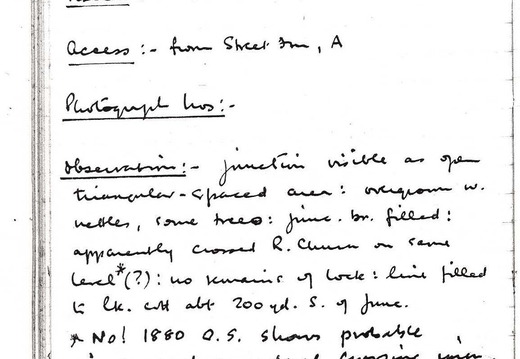 Access :- from Street Fm, A
Photograph Nos:-
Observation:- junction visible as open
triangular-spaced area: overgrown w.
nettles, some trees: junc. br. filled:
apparently crossed R. Churn on same
level*(?): no remains of lock: line filled
to lk. cott abt 200 yd. S. of junc.
* No! 1880 O.S. shows probable
crossing